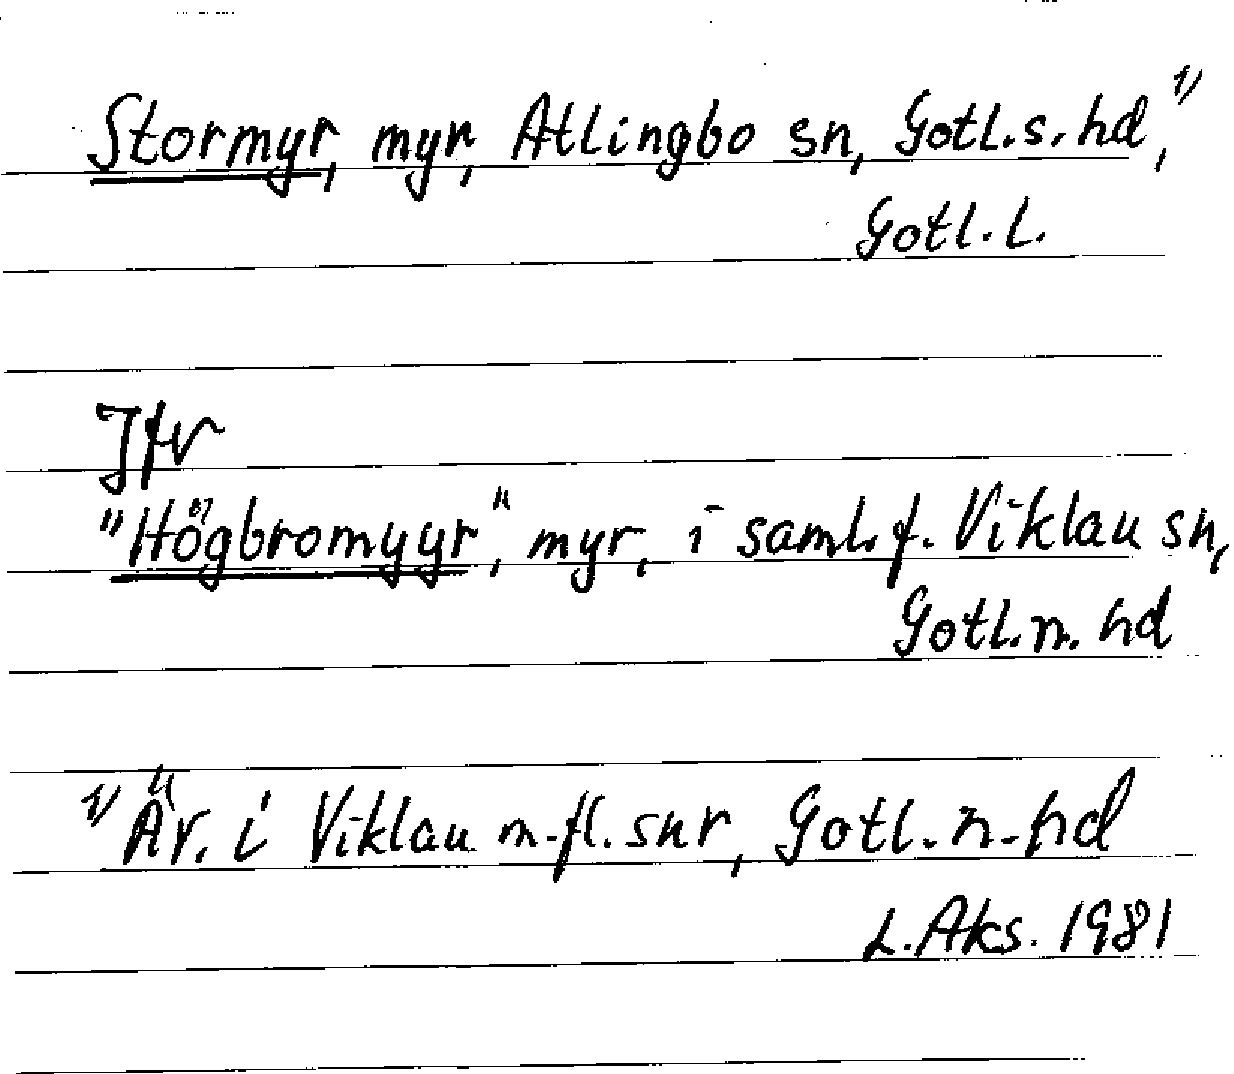 Stormyr, myr, Atlingbo sn, Gotl.s.hd, 1)
Gotl.l.
Jfr
"Högbromyyr", myr, i saml.f. Viklau sn,
Gotl.n.hd
1) Äv. i Viklau m.fl.snr, Gotl.n.hd
L.Aks. 1981